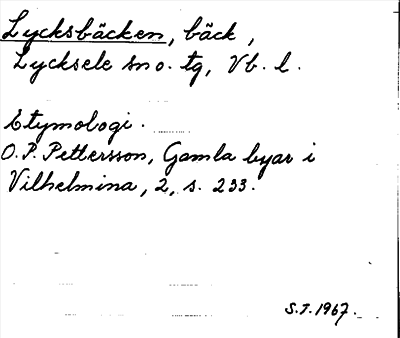 Lycksbäcken, bäck,
Lycksele sn o. tg, Vb. l.
Etymologi.
O.P. Pettersson, Gamla byar i
Vilhelmina, 2, s. 233.
S.T. 1967.